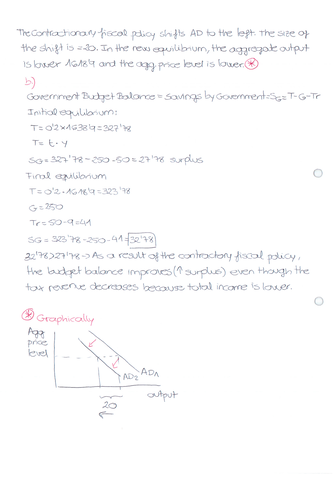 The Contractionary fiscal policy shifts AD to the left. The size of
the shift is =20. In the new equilibrium, the aggregate output
is lower 1618'9 and the agg. price level is lower. *
b)
Government Budget Ballance = Savings by Government = SG = T-G-Tr
Initial equilibrium:
T = 0'2 x 1638'9 = 327'78
T = t · y
SG = 327'78 - 250 - 50 = 27'78 surplus
Final equilibrium
T = 0'2 · 1618'9 = 323'78
G = 250
Tr = 50 - 9 = 41
SG = 323'78 - 250 - 41 = 32'78
32'78 > 27'78 → As a result of the contractory fiscal policy,
the budget balance improves (↑ surplus) even though the
tax revenue decreases because total income is lower.
* Graphically
Agg
price
level
AD2 AD1
output
20